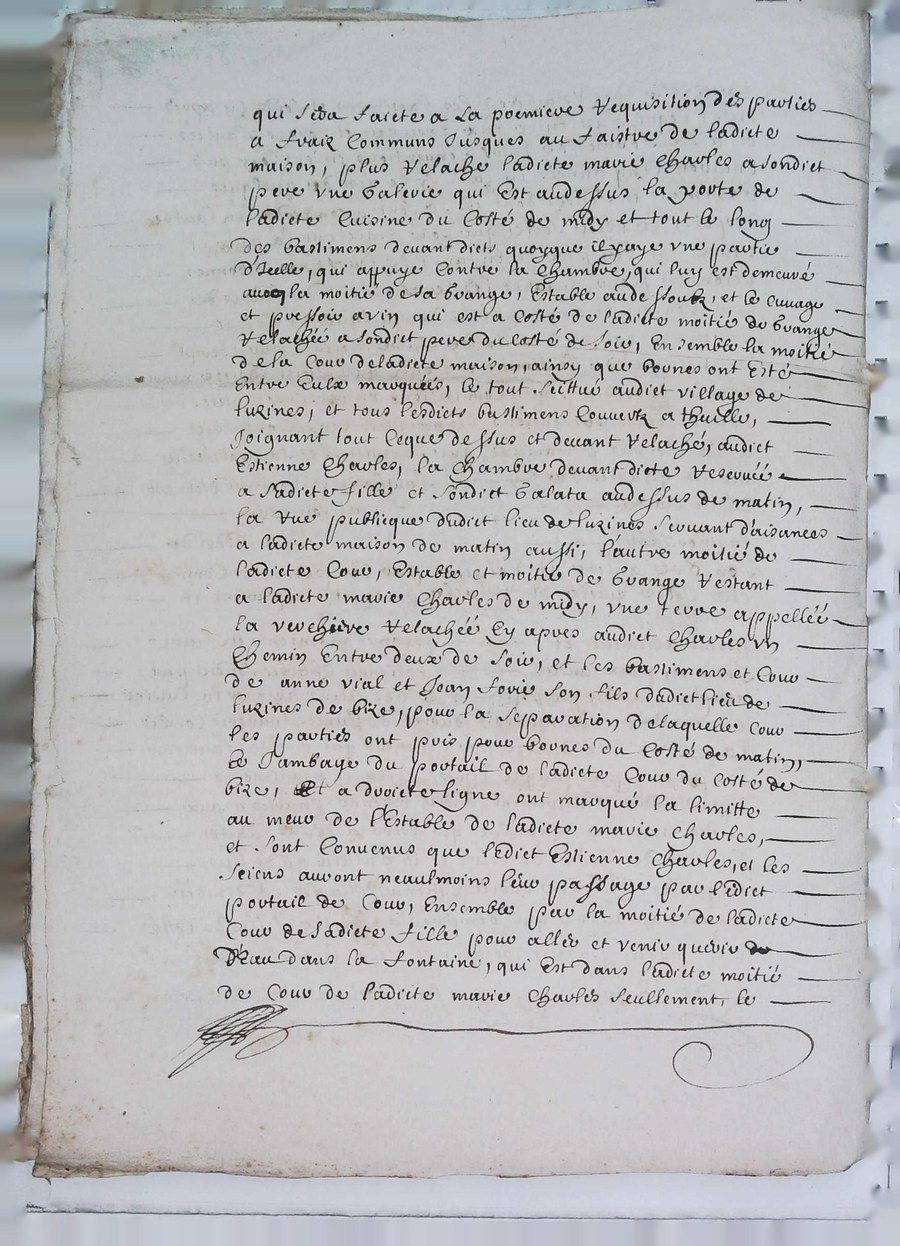 qui sera faicte a La premiere Requisition des parties
a fraix Communs Jusques au faistre de ladicte
maison, plus Relache ladicte marie Charles a sondict
pere une Galerie qui Est audessus la porte de
ladicte Cuisine du Costé de midy et tout le long
des bastimens devant dicts quoyque il y aye une partie
d'Icelle, qui apuye Contre la Chambre, qui luy est demeuré
avecq la moitié de sa Grange, Estable au dessoubz, et le cuuage
et pressoir a vin qui est a Costé de ladicte moitié de Grange
Relachée a sondict pere du Costé de soir, Ensemble la moitié
de la Cour de ladicte maison, ainsy que bornes ont Esté
Entre Eulx marquées, le tout scittué audict village de
Luzines, et tous lesdicts bastimens Couvertz a thuille,
Joignant tout Ceque dessus et devant Relaché, audict
Estienne Charles, la Chambre devant dicte Reservée
a sadicte fille et sondict Galata audessus de matin,
la Rue publicque dudict lieu de Luzines servant d'aisances
a ladicte maison de matin aussi, l'autre moitié de
ladicte Cour, Estable et moitié de Grange Restant
a ladicte marie Charles de midy, une terre appellée
la verchere Relachée Cy apres audict Charles un
Chemin Entre deux de soir, et les bastimens et Cour
de anne vial et Jean forie son fils dudict lieu de
Luzines de bize, pour la separation de laquelle Cour
les parties ont pris pour bornes du Costé de matin,
le Jambage du portail de ladicte Cour du Costé de
bize, Et a droicte ligne ont marqué la limitte
au meur de l'Estable de ladicte marie Charles,
et sont Convenus que ledict Estienne Charles, et les
seiens auront neaulmoins leur passage par ledict
portail de Cour, Ensemble par la moitié de ladicte
Cour de sadicte fille pour aller et venir querir
d'Eau dans la fontaine, qui Est dans ladicte moitié
de Cour de ladicte marie Charles seullement, le